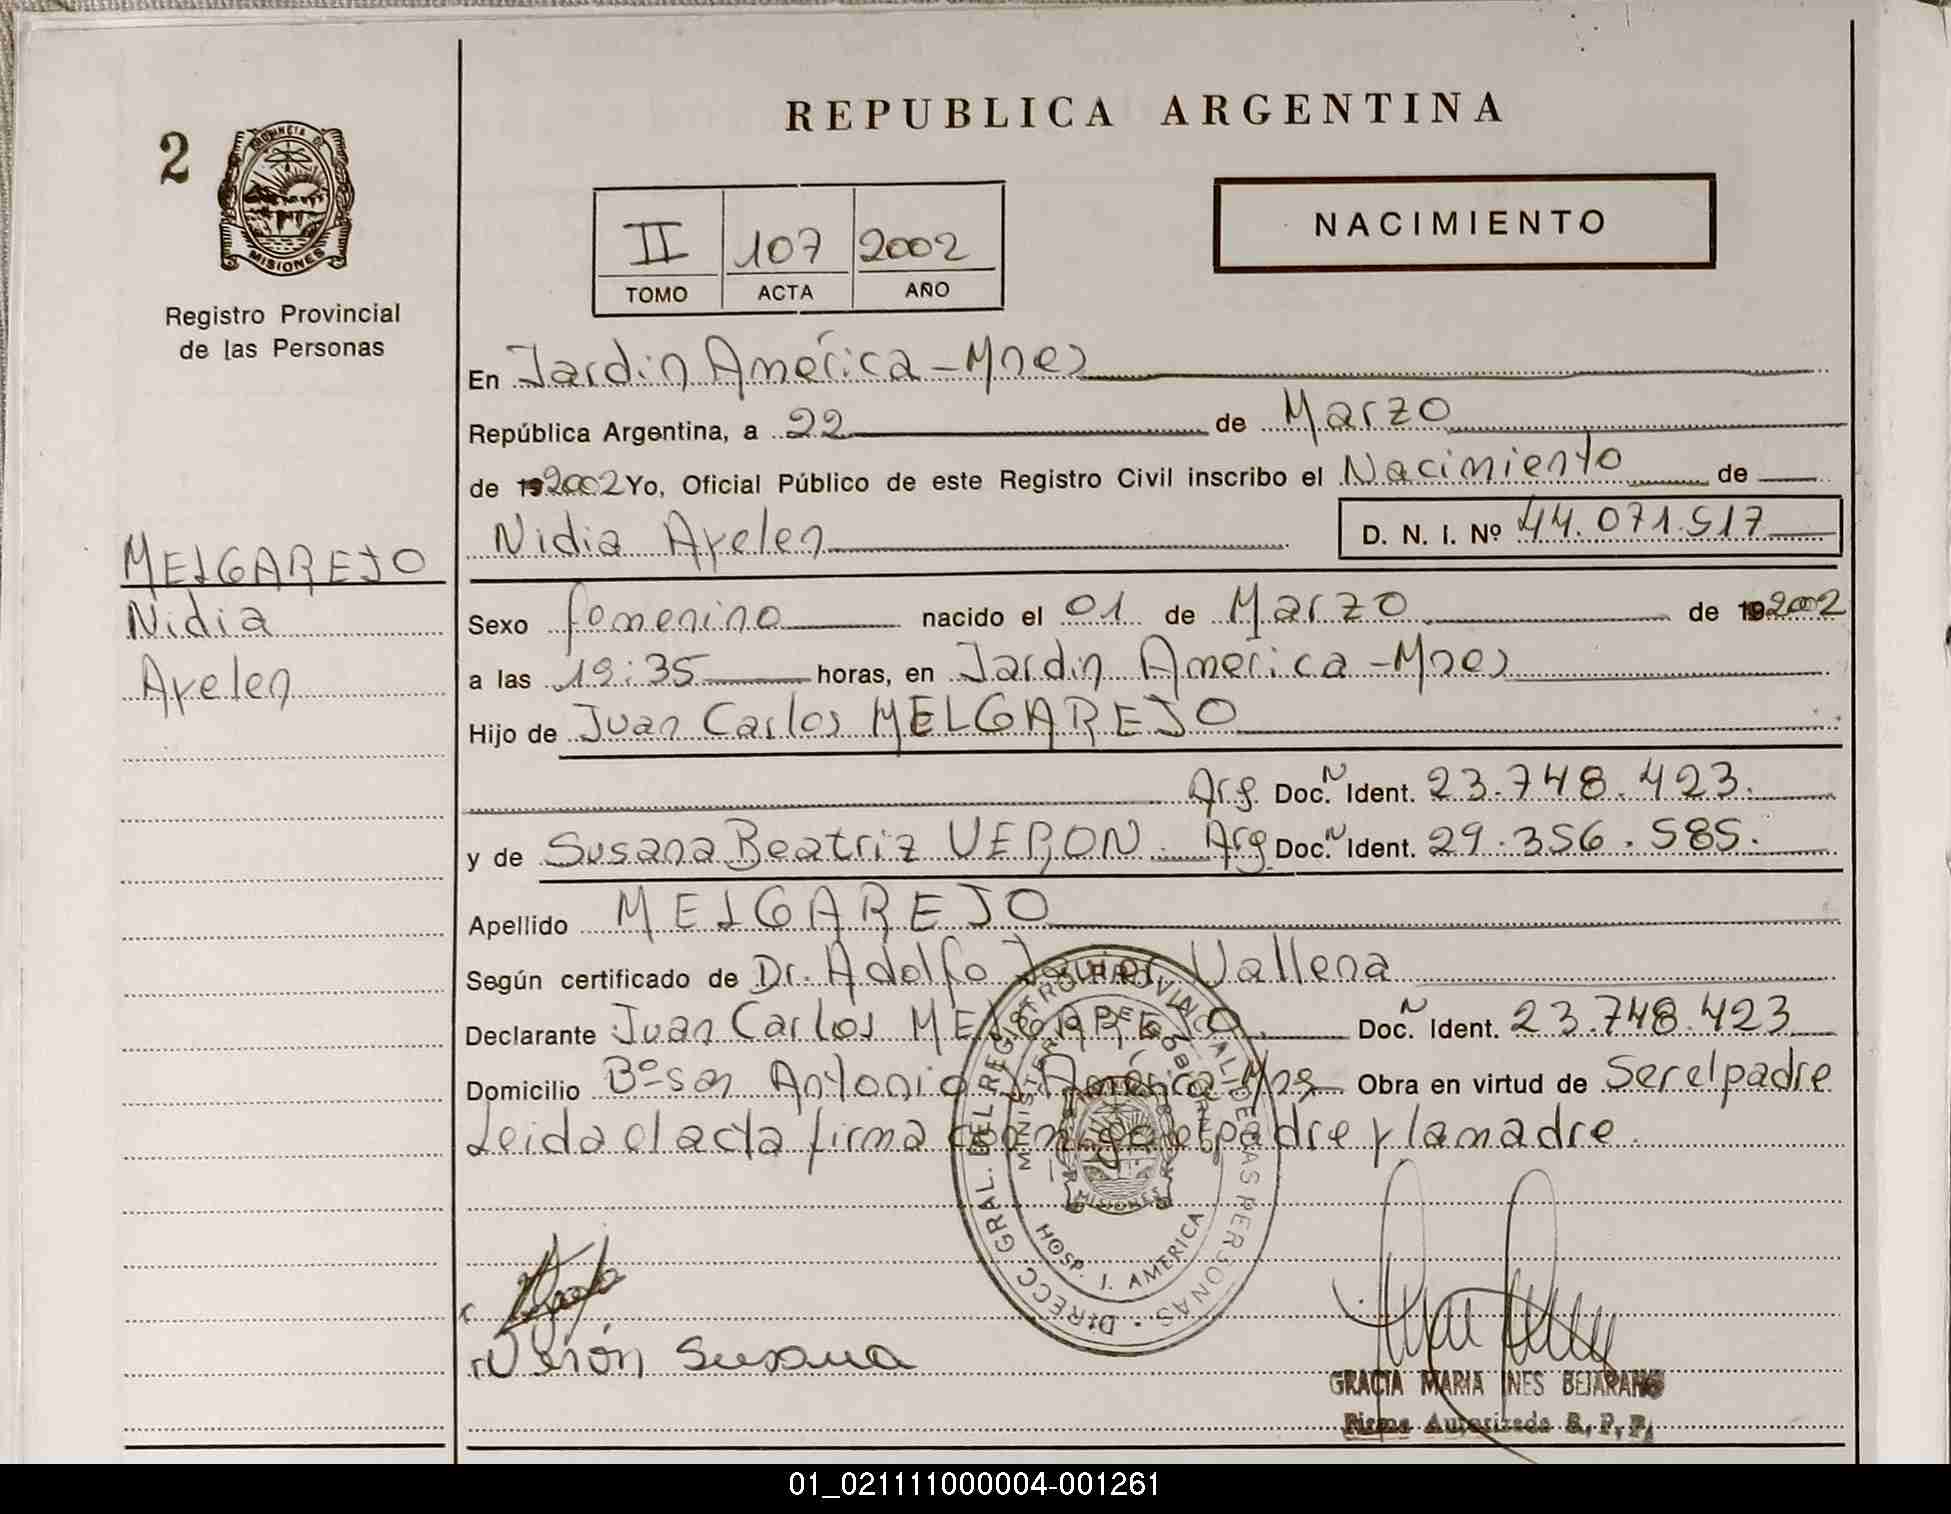 REPUBLICA ARGENTINA
2
PROVINCIA DE
MISIONES
Registro Provincial
de las Personas
II 107 2002
TOMO ACTA AÑO
NACIMIENTO
En Jardin América - Mnes
República Argentina, a 22 de Marzo
de 19 2002 Yo, Oficial Público de este Registro Civil inscribo el Nacimiento de
Nidia Ayelen D. N. I. Nº 44.071.517
MELGAREJO
Nidia
Ayelen
Sexo femenino nacido el 01 de Marzo de 19 2002
a las 19:35 horas, en Jardin America - Mnes
Hijo de Juan Carlos MELGAREJO
Arg. Doc. N Ident. 23.748.423.
y de Susana Beatriz VERON. Arg Doc. N Ident. 29.356.585.
Apellido MELGAREJO
Según certificado de Dr. Adolfo Javier Vallena
Declarante Juan Carlos MELGAREJO. Doc. N Ident. 23.748.423
Domicilio Bº San Antonio J. América - Mns Obra en virtud de Ser el padre
Leida el acta firma conmigo el padre y la madre.
DIRECC GRAL. DEL REGISTRO PROVINCIAL DE LAS PERSONAS
MINISTERIO DE GOBIERNO
MISIONES
HOSP. J. AMERICA
Verón Susana
GRACIA MARIA INES BEJARANO
Firma Autorizada R. P. P.
01_021111000004-001261